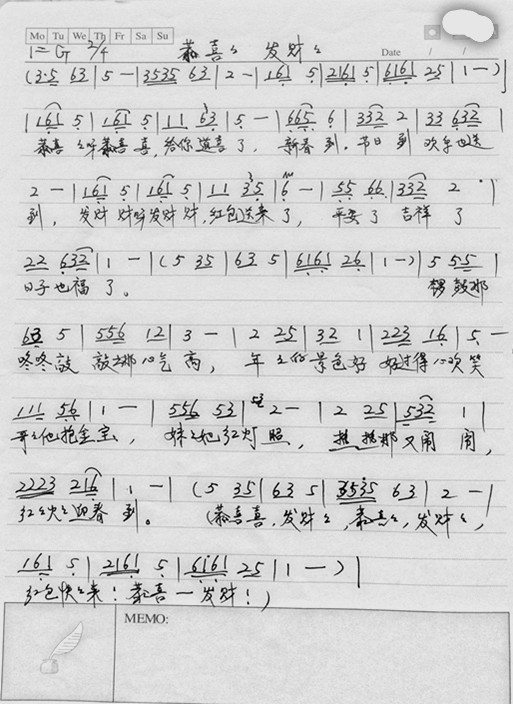 Mo Tu We Th Fr Sa Su
恭喜々 发财々
Date / /
1=G 2/4
(3·5 63 | 5 - | 3535 63 | 2 - | 161 5 | 2161 5 | 6161 25 | 1 -) |
| 161 5 | 161 5 | 11 63 | 5 - | 665 6 | 332 2 | 33 632 |
恭喜 々呀恭喜 喜, 给你道喜 了, 新春 到, 节日 到 欢乐也送
2 - | 161 5 | 161 5 | 11 35 | 6 - | 55 66 | 332 2 · |
到, 发财 财呀发财 财, 红包送来 了, 平安 了 吉祥 了
22 632 | 1 - | (5 35 | 63 5 | 6161 26 | 1 -) | 5 55 |
日子也福 了。 锣 鼓那
63 5 | 556 12 | 3 - | 2 25 | 32 1 | 223 16 | 5 -
咚咚 敲 敲々那心气 高, 年 々的 景色 好 好过得心欢 笑
111 56 | 1 - | 556 53 | 53 2 - | 2 25 | 532 1 |
哥々他抱金 宝, 妹々她红灯 照, 热 热那 又闹 闹,
2223 216 | 1 - | (5 35 | 63 5 | 3535 63 | 2 - |
红々火々迎春 到。 (恭喜喜, 发财々, 恭喜々, 发财々,
161 5 | 2161 5 | 6161 25 | 1 - ) |
红包快々来! 恭喜一发财! )
MEMO: